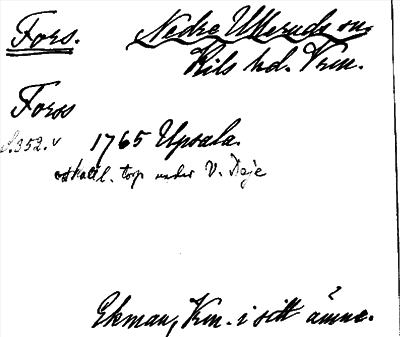 Fors. Nedre Ulleruds sn.
Kils hd. Vrm.
Forss
S.352.v 1765 Upsala.
torp under V. Deje
Ekman, Vrm. i sitt ämne.